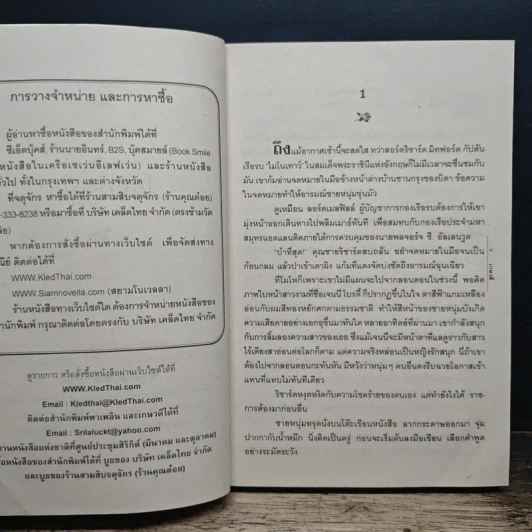 การวางจำหน่าย และการหาซื้อ
ผู้อ่านหาซื้อหนังสือของสำนักพิมพ์ได้ที่
ซีเอ็ดบุ๊คส์, ร้านนายอินทร์, B2S, บุ๊คสมายล์ (Book Smile
หนังสือในเครือเซเว่นอีเลฟเว่น) และร้านหนังสือ
ทั่วไป ทั้งในกรุงเทพฯ และต่างจังหวัด
ที่จตุจักร หาซื้อได้ที่ร้านสามสิบจตุจักร (ร้านคุณต้อย)
-333-8238 หรือมาซื้อที่ บริษัท เคล็ดไทย จำกัด (ตรงข้ามวัด
หากต้องการสั่งซื้อผ่านทางเว็บไซต์ เพื่อจัดส่งทาง
ณีย์ ติดต่อได้ที่
WWW.KledThai.com
WWW.Siamnovella.com (สยามโนเวลลา)
ร้านหนังสือทางเว็บไซต์ใด ต้องการจำหน่ายหนังสือของ
สำนักพิมพ์ กรุณาติดต่อโดยตรงกับ บริษัท เคล็ดไทย จำกัด
ดูรายการ หรือสั่งซื้อหนังสือผ่านเว็บไซต์ได้ที่
WWW.KledThai.com
Email : Kledthai@KledThai.com
ติดต่อสำนักพิมพ์พาเพลิน และเกษวดีได้ที่
Email : Srilaluckt@yahoo.com
งานหนังสือแห่งชาติที่ศูนย์ประชุมสิริกิติ์ (มีนาคม และตุลาคม)
หนังสือของสำนักพิมพ์ได้ที่ บูธของ บริษัท เคล็ดไทย จำกัด
และบูธของร้านสามสิบจตุจักร (ร้านคุณต้อย)
1
ถึงแม้อากาศเช้านี้จะสดใส ทว่าลอร์ดริชาร์ด มิทฟอร์ด กัปตัน
เรือรบ 'ไมโนเทาร์' ในสมเด็จพระราชินีแห่งอังกฤษก็ไม่มีเวลาจะชื่นชมกับ
มัน เขาก้มอ่านจดหมายในมือข้างหน้าต่างบ้านชานกรุงของบิดา ข้อความ
ในจดหมายทำให้อารมณ์ชายหนุ่มขุ่นมัว
ดูเหมือน ลอร์ดเมลฟิลล์ ผู้บัญชาการกองเรือรบต้องการให้เขา
มุ่งหน้าออกเดินทางไปพลิมเม้าท์ทันที เพื่อสมทบกับกองเรือประจำมหา
สมุทรแอตแลนติคภายใต้การควบคุมของนายพลจอร์จ ซี. อัลเลนวูด
"บ้าที่สุด!" คุณชายริชาร์ดสบถลั่น อย่าจดหมายในมือจนเป็น
ก้อนกลม แล้วปาเข้าเตาผิง แก้มที่แดงจัดบ่งชัดถึงอารมณ์ฉุนเฉียว
ที่โมโหก็เพราะเขาไม่มีแผนจะไปจากลอนดอนในช่วงนี้ พอคิด
ภาพใบหน้าสาวงามที่ชื่อเจนนี่ โบรดี้ ก็ปรากฏขึ้นในใจ ตาสีฟ้าแกมเหลือง
อ่อนกับผมสีทองหยักศกตามธรรมชาติ ทำให้สีหน้าของชายหนุ่มบังเกิด
ความเสียดายอย่างเอกอุขึ้นมาทันใด หลายอาทิตย์ที่ผ่านมา เขากำลังสนุก
กับการลิ้มลองความสาวของเธอ ซึ่งแม้เจนนี่จะมีหน้าตาที่แลดูราวกับสาว
ไร้เดียงสาอ่อนต่อโลกก็ตาม แต่ความจริงหล่อนเป็นหญิงรักสนุก นี่ถ้าเขา
ต้องไปจากลอนดอนกะทันหัน มีหวังว่าหนุ่มๆ คนอื่นคงรีบฉวยโอกาสเข้า
แทนที่แทบไม่ทันทีเดียว
ริชาร์ดหงุดหงิดกับความโชคร้ายของตนเอง แต่ทำยังไงได้ ราช-
การต้องมาก่อนอื่น
ชายหนุ่มทรุดนั่งบนโต๊ะเขียนหนังสือ ลากกระดาษออกมา จุ่ม
ปากกากับน้ำหมึก นิ่งคิดเป็นครู่ ก่อนจะเริ่มต้นลงมือเขียน เลือกคำพูด
อย่างระมัดระวัง